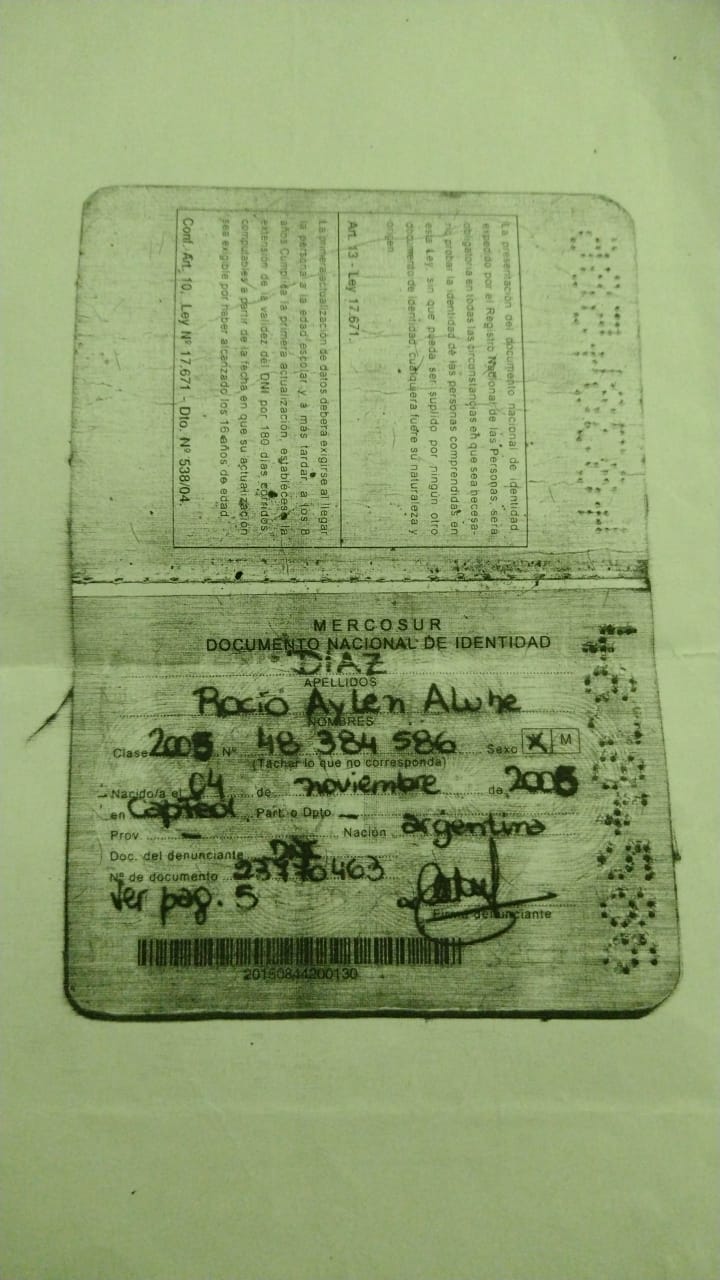 La presentación del documento nacional de identidad
expedido por el Registro Nacional de las Personas, será
obligatoria en todas las circunstancias en que sea necesa-
rio probar la identidad de las personas comprendidas en
esta Ley, sin que pueda ser suplido por ningún otro
documento de identidad cualquiera fuere su naturaleza y
origen
Art. 13 - Ley 17.671.
La primera actualización de datos deberá exigirse al llegar
la persona a la edad escolar y a más tardar, a los 8
años Cumplida la primera actualización, establécese la
extensión de la validez del DNI por 180 días corridos
computables a partir de la fecha en que su actualización
sea exigible por haber alcanzado los 16 años de edad
Conf. Art. 10, Ley Nº 17.671 - Dto. Nº 538/04.
MERCOSUR
DOCUMENTO NACIONAL DE IDENTIDAD
DíAZ
APELLIDOS
Rocío Aylen
NOMBRES
Clase 2005 Nº 48 384 586 Sexo X M
(Tachar lo que no corresponda)
Nacido/a el 04 de noviembre de 2005
en Capital Part. o Dpto —
Prov. — Nación argentina
Doc. del denunciante
Nº de documento 23770463
Ver pag. 5
Firma denunciante
20150844200130